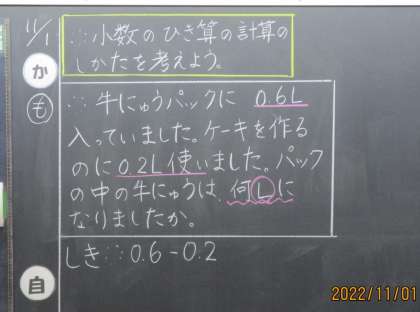 11/1
∴小数のひき算の計算の
しかたを考えよう。
か
も
∴牛にゅうパックに 0.6L
入っていました。ケーキを作る
のに0.2L使いました。パック
の中の牛にゅうは、何Lに
なりましたか。
しき∴0.6-0.2
自
2022/11/01